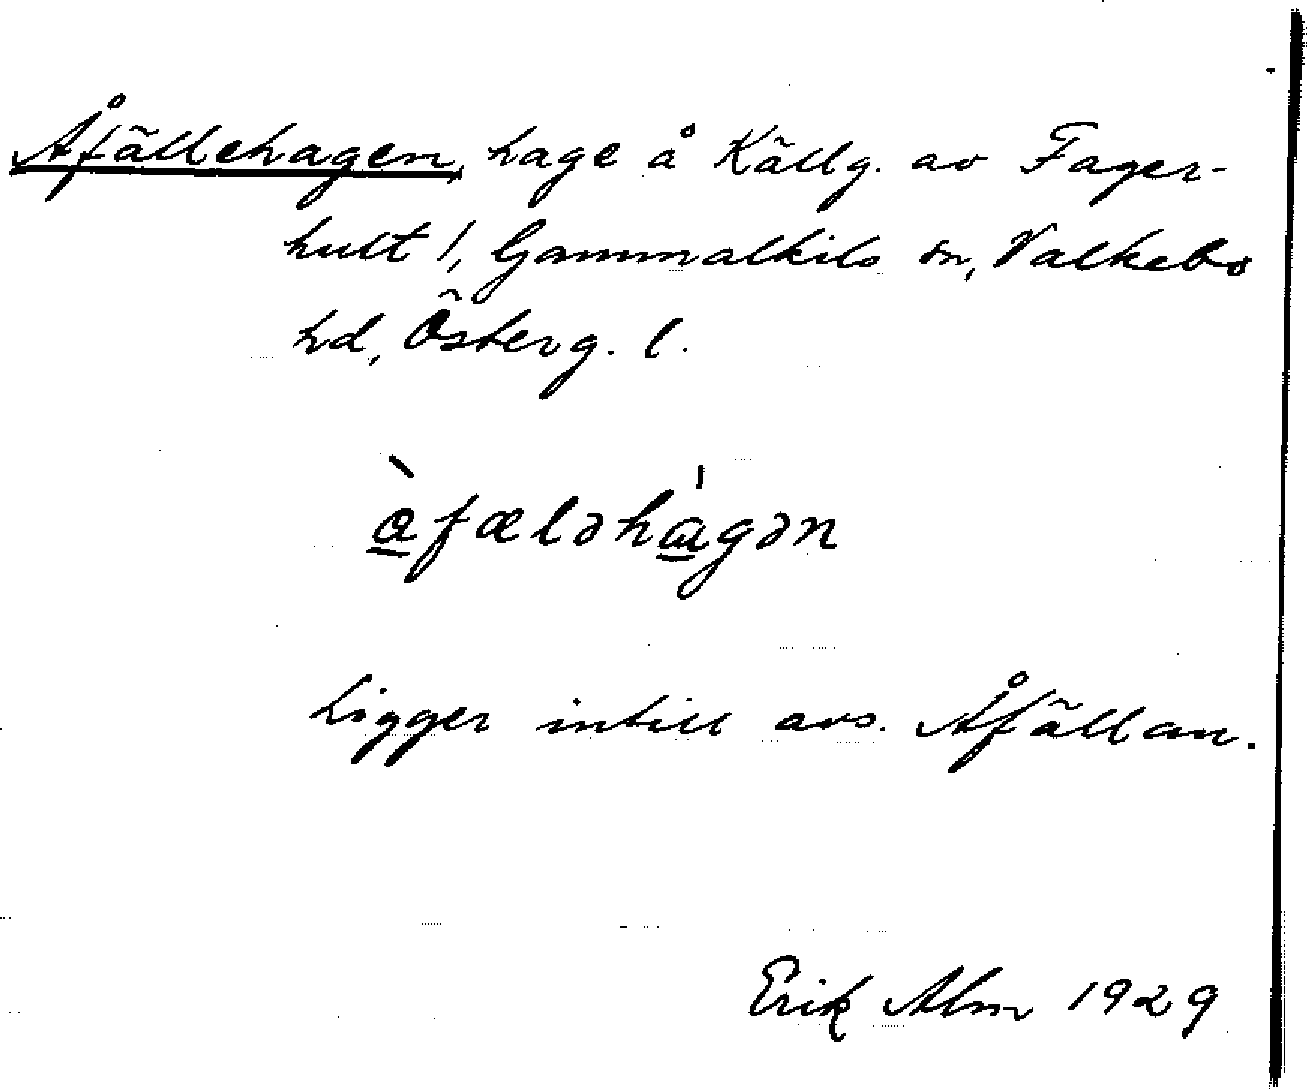 Åfällehagen, hage å Källg. av Fager-
hult 1, Gammalkils sn, Valkebo
hd, Österg. l.
å̀fæləhɑ̀gən
Ligger intill avs. Åfällan.
Erik Alm 1929